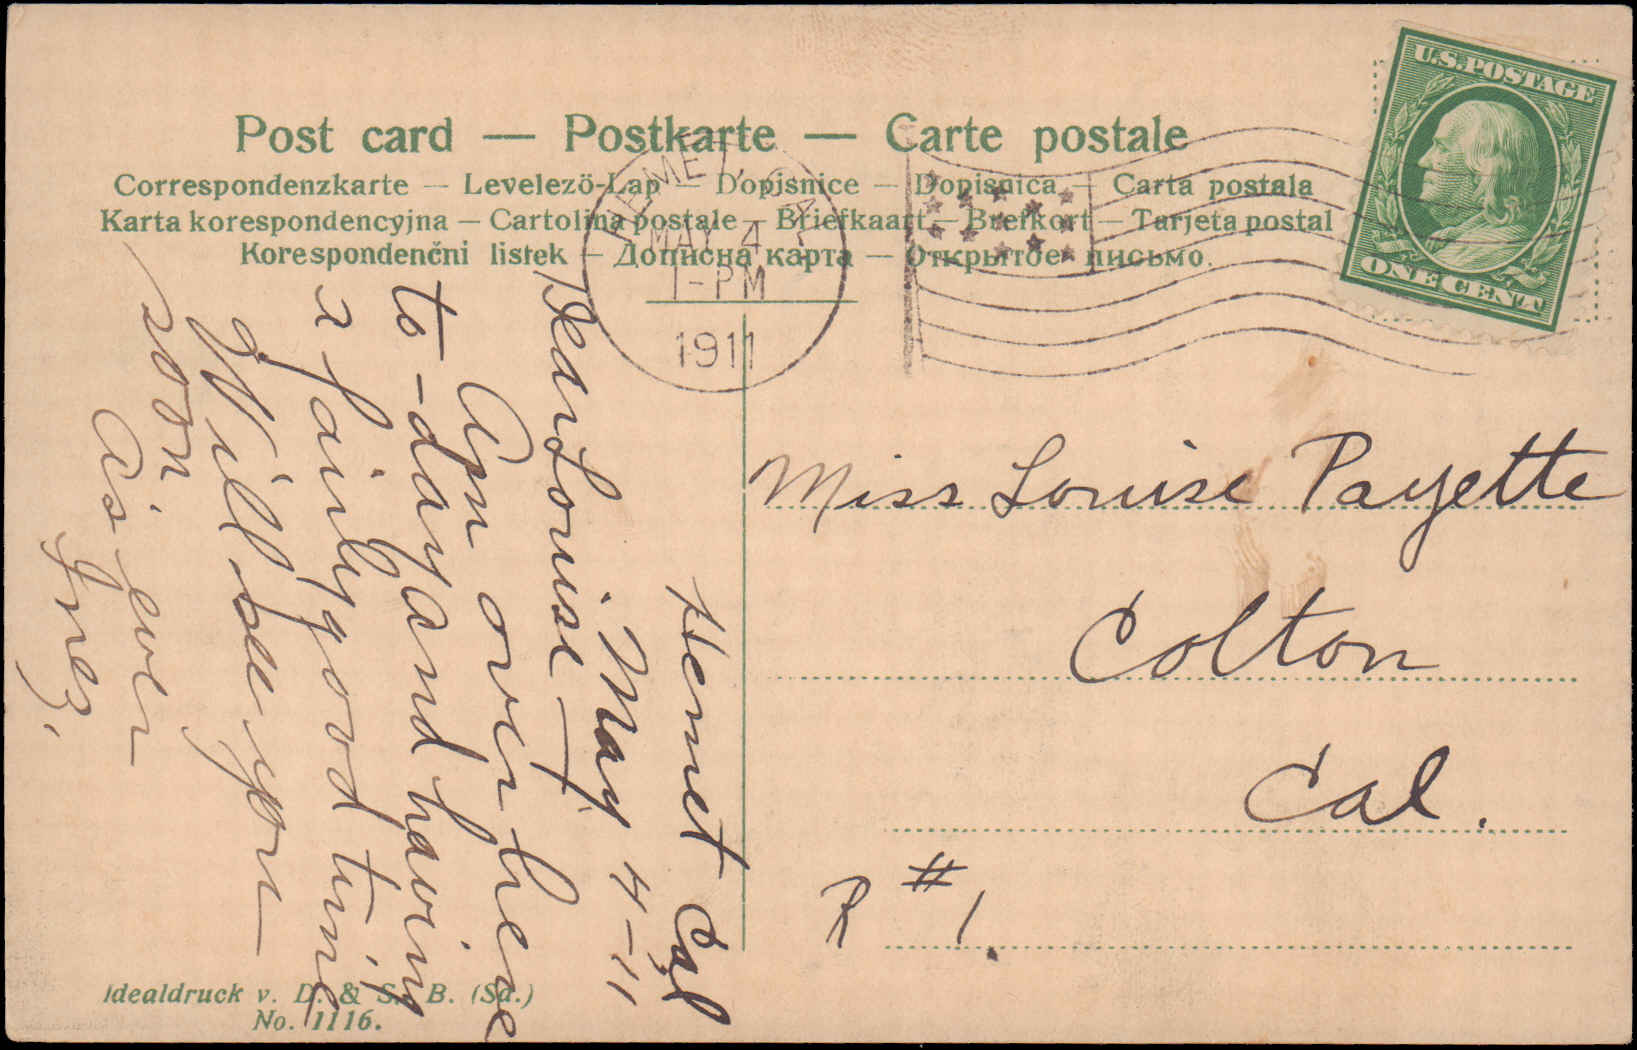 Post card — Postkarte — Carte postale
Correspondenzkarte — Levelező-Lap — Dopisnice — Dopisnica — Carta postala
Karta korespondencyjna — Cartolina postale — Briefkaart — Brefkort — Tarjeta postal
Korespondenčni listek — Дописна карта — Открытое письмо.
U.S. POSTAGE
ONE CENT
HEMET, CAL.
MAY 4
1-PM
1911
Hemet Cal
May 4-11
Dear Louise—
Am over here
to-day and having
a fairly good time
Will see you
soon
As ever
Inez.
Miss Louise Payette
Colton
Cal.
R #1.
Idealdruck v. D. & S. B. (Sa.)
No. 1116.